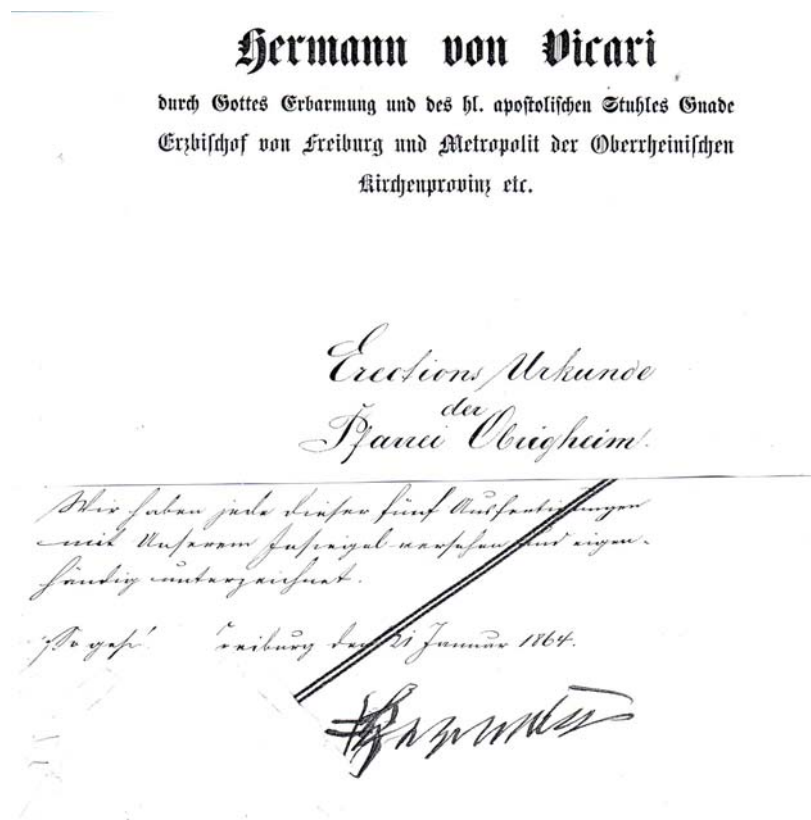 Hermann von Vicari
durch Gottes Erbarmung und des hl. apostolischen Stuhles Gnade
Erzbischof von Freiburg und Metropolit der Oberrheinischen
Kirchenprovinz etc.
Erections Urkunde
der
Pfarrei Obrigheim.
Wir haben jede dieser fünf Ausfertigungen
mit Unserem Insiegel versehen und eigen-
händig unterzeichnet.
So gesch reiburg den 21 Januar 1864.